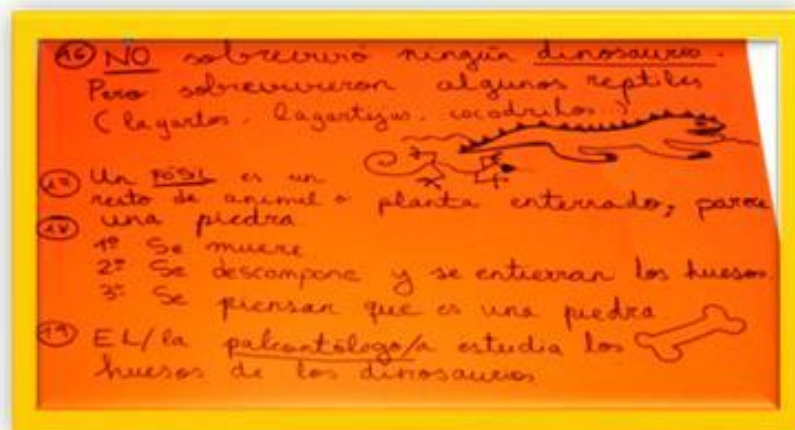 16 NO sobrevivió ningún dinosaurio.
Pero sobrevivieron algunos reptiles
(lagartos, lagartijas, cocodrilos...)
17 Un FÓSIL es un
resto de animal o planta enterrado, parece
18 una piedra
1º Se muere
2º Se descompone y se entierran los huesos.
3º Se piensan que es una piedra
19 EL/la paleontólogo/a estudia los
huesos de los dinosaurios